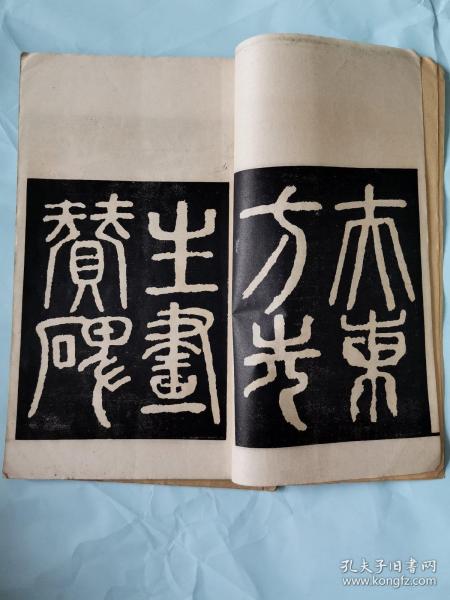 夫東
方先
生畫
贊碑
孔夫子旧书网
www.kongfz.com